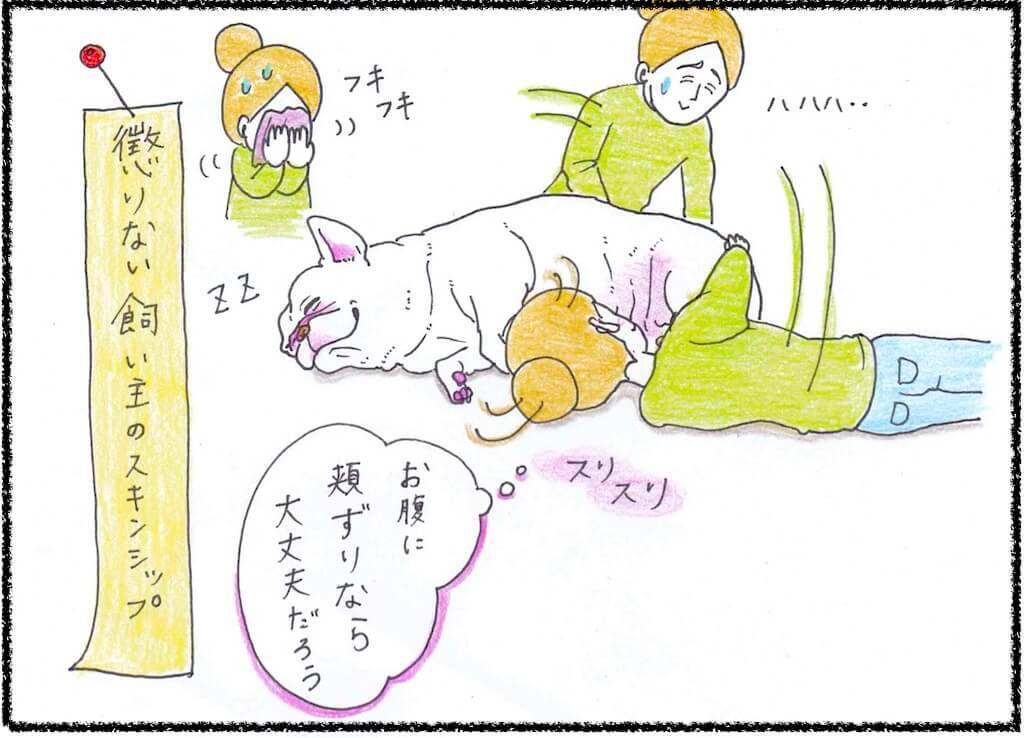 懲りない飼い主のスキンシップ
フキ
フキ
ハハハ・・
ZZ
スリ
スリ
お腹に
頬ずりなら
大丈夫だろう